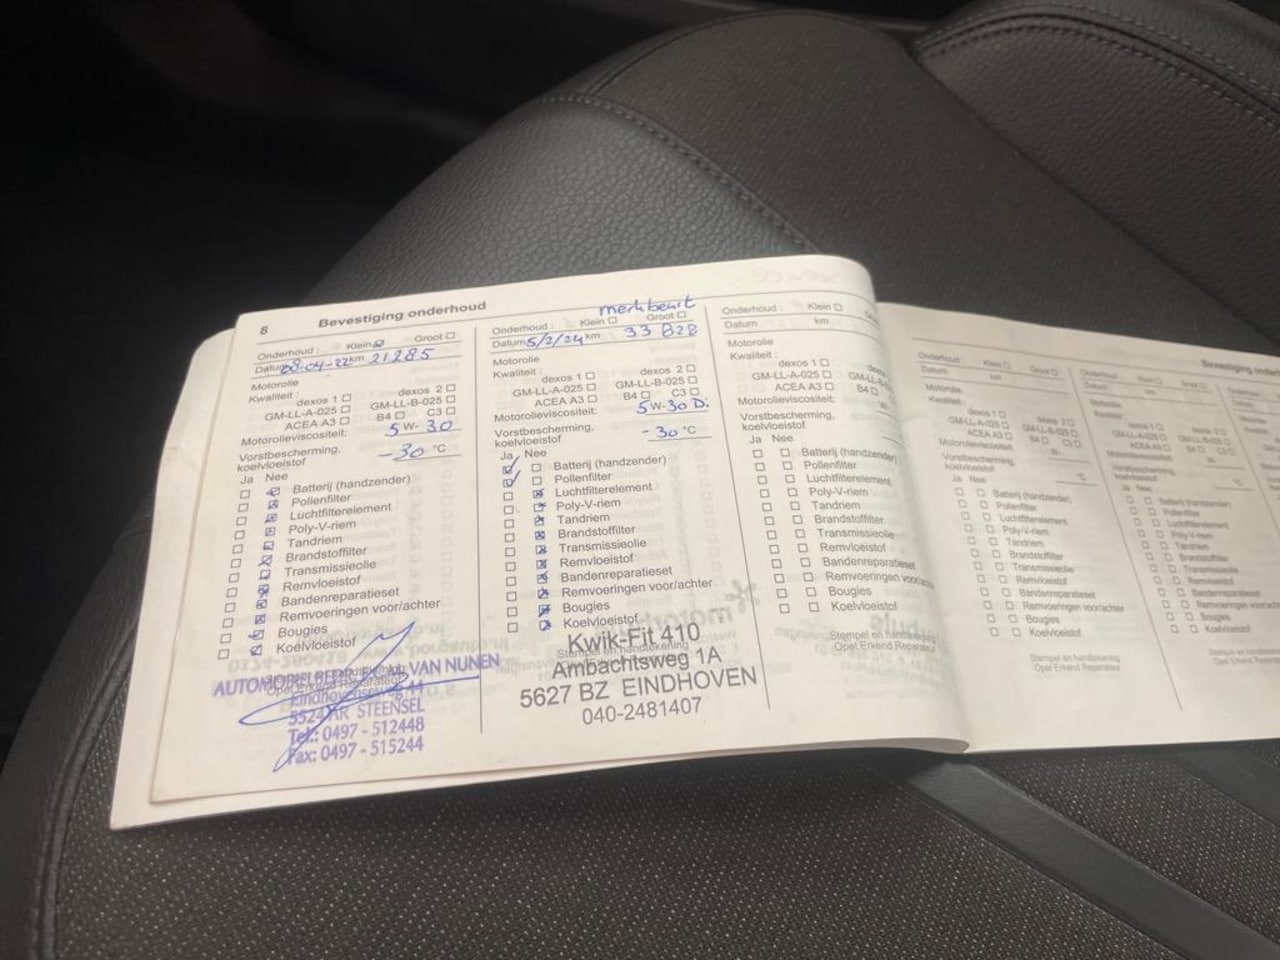 8 Bevestiging onderhoud
Onderhoud : Klein Groot
Datum 08-04-22 km 21285
Motorolie
Kwaliteit : dexos 1 dexos 2
GM-LL-A-025 GM-LL-B-025
ACEA A3 B4 C3
Motorolieviscositeit: 5 W- 30
Vorstbescherming,
koelvloeistof -30 °C
Ja Nee
Batterij (handzender)
Pollenfilter
Luchtfilterelement
Poly-V-riem
Tandriem
Brandstoffilter
Transmissieolie
Remvloeistof
Bandenreparatieset
Remvoeringen voor/achter
Bougies
Koelvloeistof
AUTOMOBIELBEDR. VAN NUNEN
Eindhovenseweg
5524 AR STEENSEL
Tel.: 0497 - 512448
Fax: 0497 - 515244
merkbeurt
Onderhoud : Klein Groot
Datum 5/2/24 km 33828
Motorolie
Kwaliteit : dexos 1 dexos 2
GM-LL-A-025 GM-LL-B-025
ACEA A3 B4 C3
Motorolieviscositeit: 5 W-30 D.
Vorstbescherming,
koelvloeistof -30 °C
Ja Nee
Batterij (handzender)
Pollenfilter
Luchtfilterelement
Poly-V-riem
Tandriem
Brandstoffilter
Transmissieolie
Remvloeistof
Bandenreparatieset
Remvoeringen voor/achter
Bougies
Koelvloeistof
Kwik-Fit 410
Stempel en handtekening
Ambachtsweg 1A
5627 BZ EINDHOVEN
040-2481407
Onderhoud : Klein
Datum km
Motorolie
Kwaliteit : dexos 1
GM-LL-A-025
ACEA A3 B4
Motorolieviscositeit:
Vorstbescherming,
koelvloeistof
Ja Nee
Batterij (handzender)
Pollenfilter
Luchtfilterelement
Poly-V-riem
Tandriem
Brandstoffilter
Transmissieolie
Remvloeistof
Bandenreparatieset
Remvoeringen
Bougies
Koelvloeistof
Stempel en handtekening
Opel Erkend Reparateur
Onderhoud : Klein Groot
Datum km
Motorolie
Kwaliteit : dexos 1 dexos 2
GM-LL-A-025 GM-LL-B-025
ACEA A3 B4 C3
Motorolieviscositeit: W-
Vorstbescherming,
koelvloeistof °C
Ja Nee
Batterij (handzender)
Pollenfilter
Luchtfilterelement
Poly-V-riem
Tandriem
Brandstoffilter
Transmissieolie
Remvloeistof
Bandenreparatieset
Remvoeringen voor/achter
Bougies
Koelvloeistof
Stempel en handtekening
Opel Erkend Reparateur
Bevestiging
Onderhoud : Klein Groot
Datum km
Motorolie
Kwaliteit : dexos 1 dexos 2
GM-LL-A-025 GM-LL-B-025
ACEA A3 B4 C3
Motorolieviscositeit: W-
Vorstbescherming,
koelvloeistof °C
Ja Nee
Batterij (handzender)
Pollenfilter
Luchtfilterelement
Poly-V-riem
Tandriem
Brandstoffilter
Transmissieolie
Remvloeistof
Bandenreparatieset
Remvoeringen voor/achter
Bougies
Koelvloeistof
Stempel en handtekening
Opel Erkend Reparateur